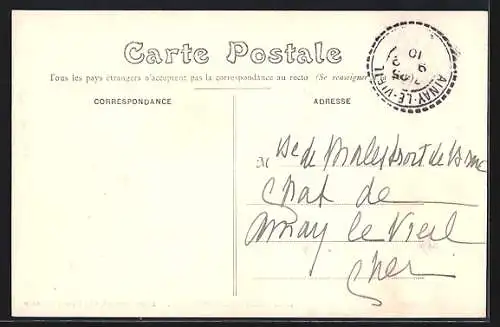 Carte Postale
Tous les pays étrangers n'acceptent pas la correspondance au recto (Se renseigner
CORRESPONDANCE
ADRESSE
AINAY-LE-VIEIL
10
M
de
Chat de
Ainay le Vieil
Cher